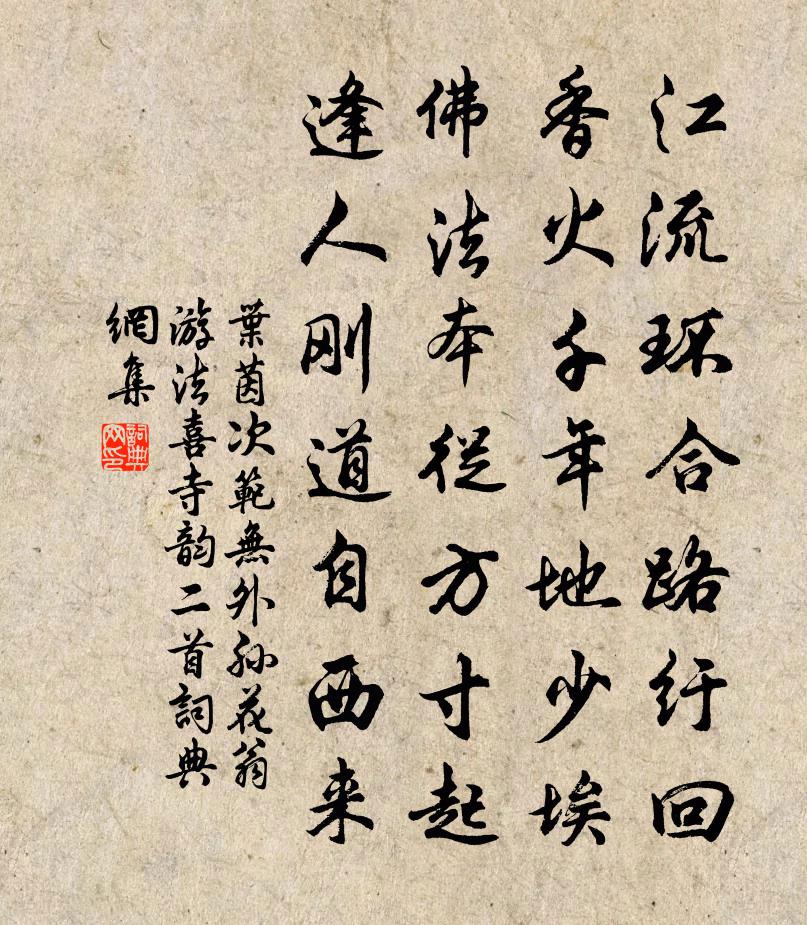 江流环合路纡回
香火千年地少埃
佛法本從方寸起
逢人刚道自西来
葉茵次範無外孙花翁
游法喜寺韵二首詞典
網集
詞典
网印